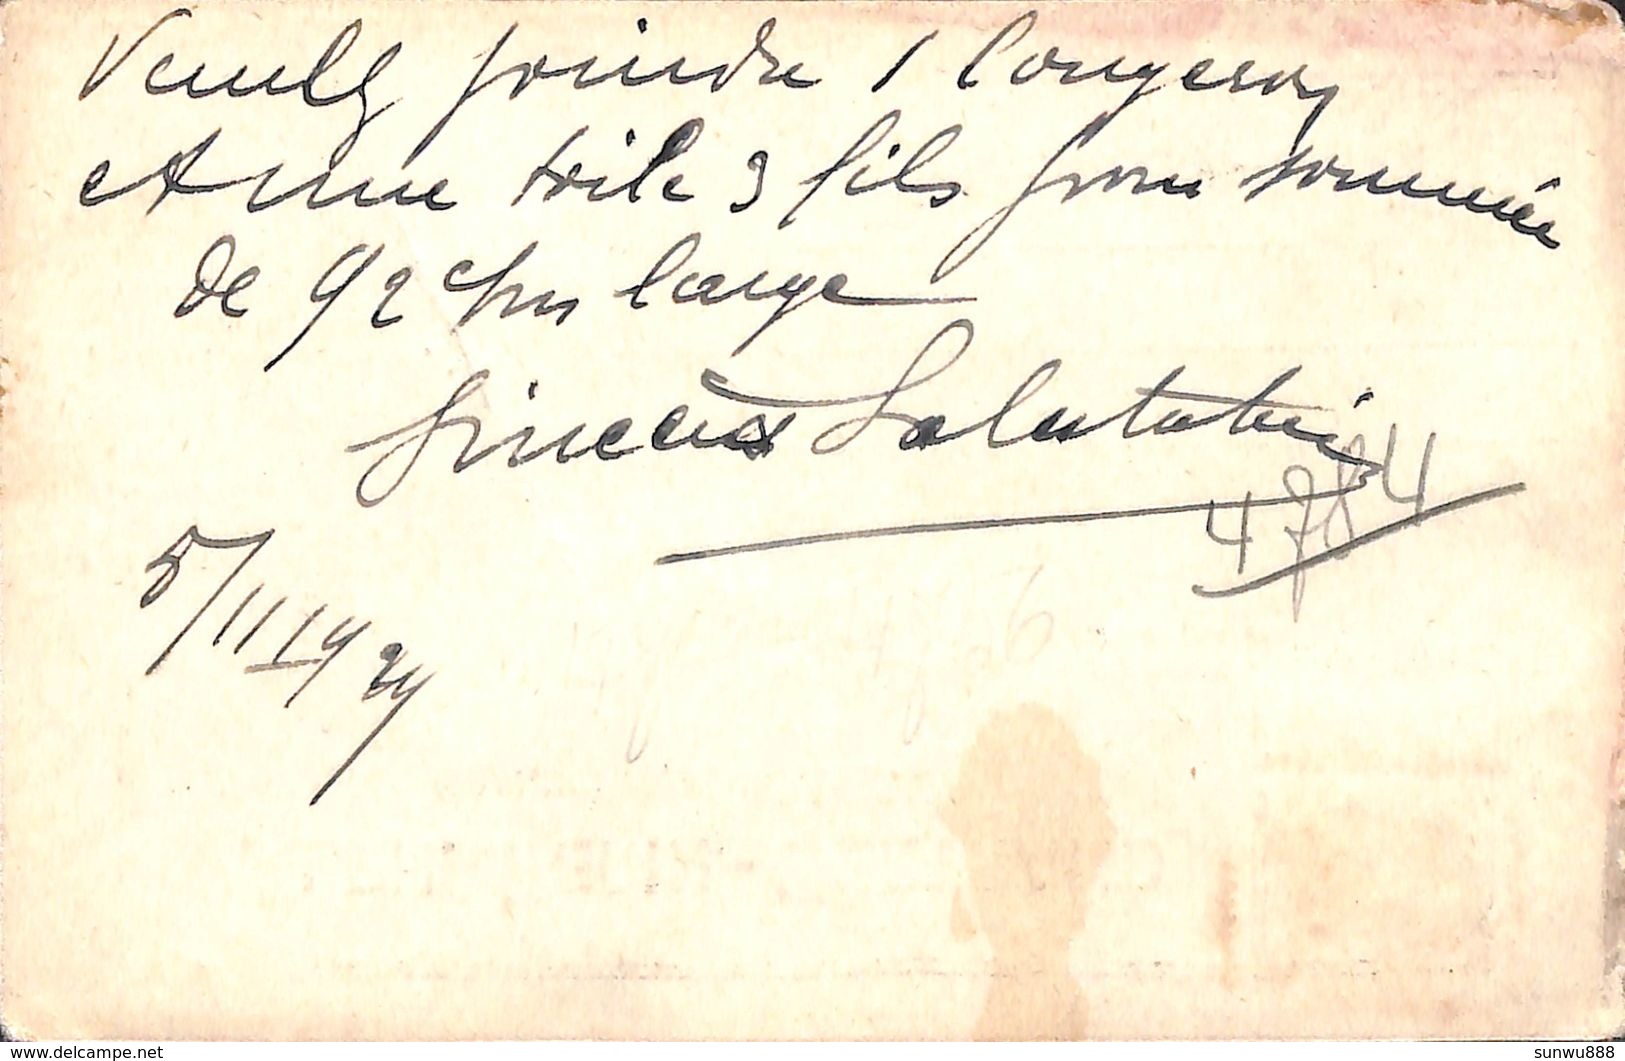 Veuillez joindre 1 longeron
et une toile 3 fils pour sommier
de 92 c/m large
Sincères Salutations
4784
5/11 19
www.delcampe.net
sunwu888